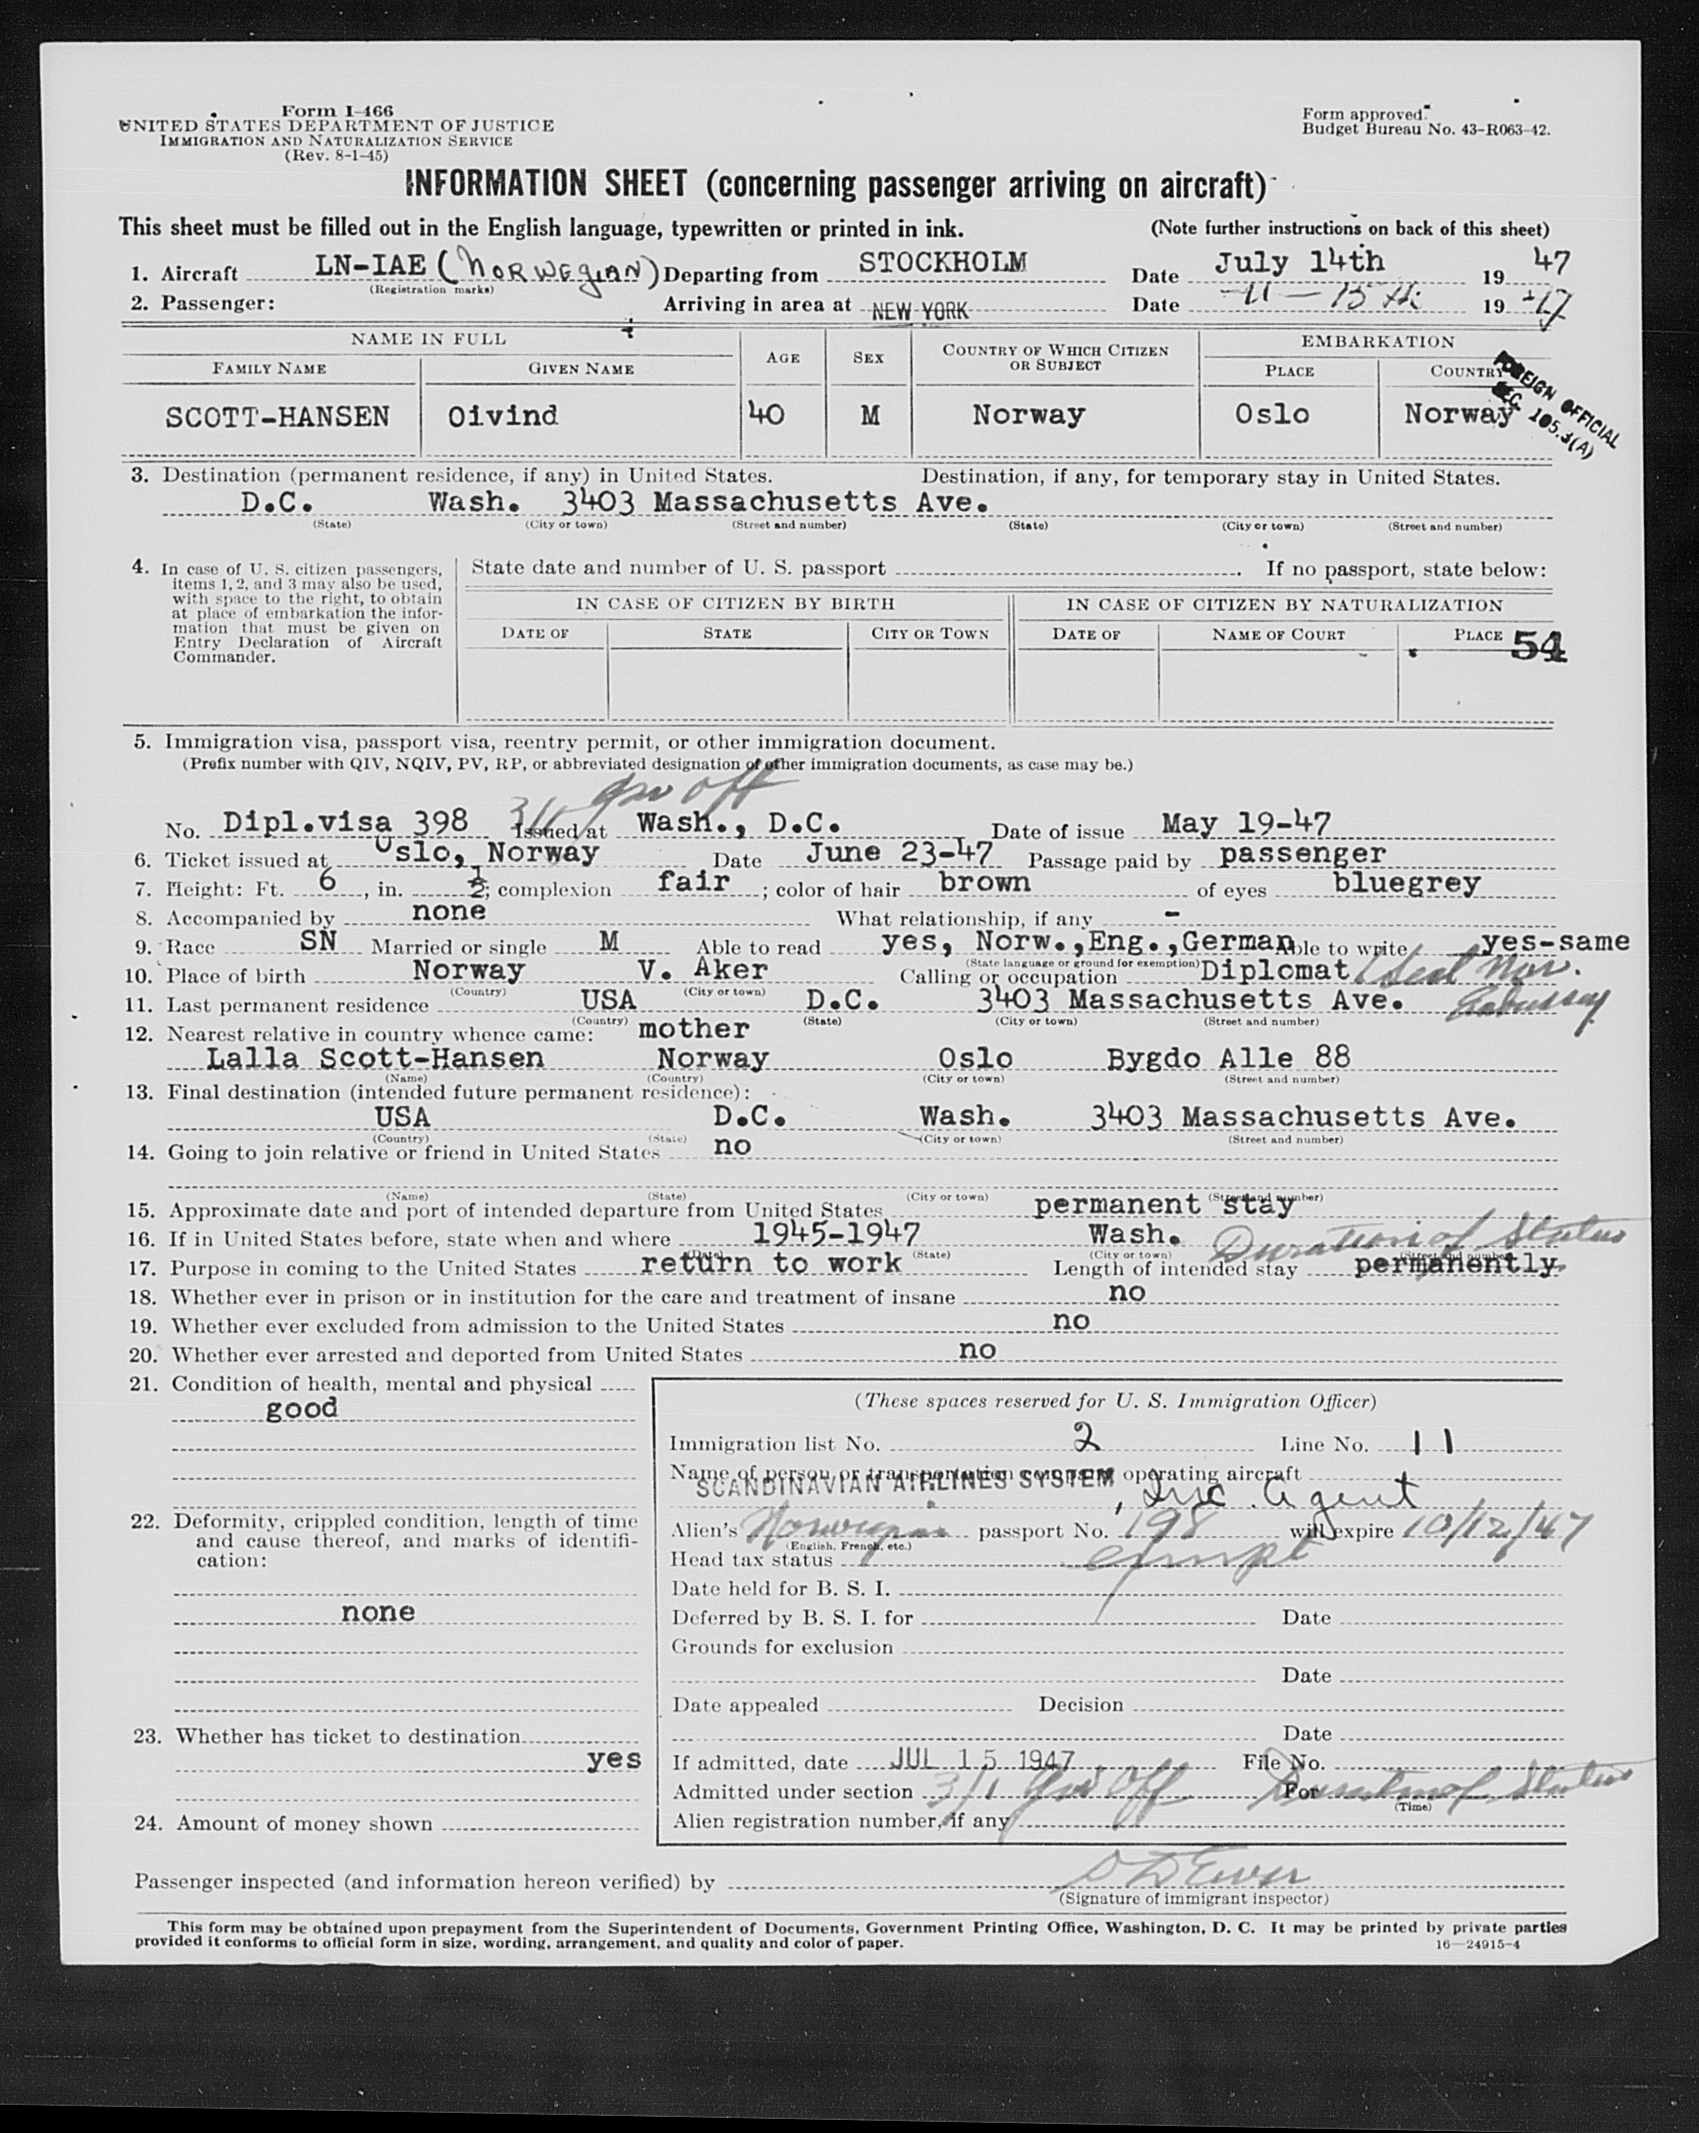 Form I-466
UNITED STATES DEPARTMENT OF JUSTICE
IMMIGRATION AND NATURALIZATION SERVICE
(Rev. 8-1-45)
Form approved.
Budget Bureau No. 43-R063-42.
INFORMATION SHEET (concerning passenger arriving on aircraft)
This sheet must be filled out in the English language, typewritten or printed in ink. (Note further instructions on back of this sheet)
1. Aircraft LN-IAE (NORWEGIAN) Departing from STOCKHOLM Date July 14th 19 47
(Registration marks)
2. Passenger: Arriving in area at NEW YORK Date -11- 15th 19 47
NAME IN FULL AGE SEX COUNTRY OF WHICH CITIZEN OR SUBJECT EMBARKATION
FAMILY NAME GIVEN NAME PLACE COUNTRY
SCOTT-HANSEN Oivind 40 M Norway Oslo Norway
FOREIGN OFFICIAL
SEC. 105.3(A)
3. Destination (permanent residence, if any) in United States. Destination, if any, for temporary stay in United States.
D.C. Wash. 3403 Massachusetts Ave.
(State) (City or town) (Street and number) (State) (City or town) (Street and number)
4. In case of U. S. citizen passengers, items 1, 2, and 3 may also be used, with space to the right, to obtain at place of embarkation the information that must be given on Entry Declaration of Aircraft Commander.
State date and number of U. S. passport . If no passport, state below:
IN CASE OF CITIZEN BY BIRTH IN CASE OF CITIZEN BY NATURALIZATION
DATE OF STATE CITY OR TOWN DATE OF NAME OF COURT PLACE 54
5. Immigration visa, passport visa, reentry permit, or other immigration document.
(Prefix number with QIV, NQIV, PV, RP, or abbreviated designation of other immigration documents, as case may be.)
3/1 Gov off
No. Dipl.visa 398 Issued at Wash., D.C. Date of issue May 19-47
6. Ticket issued at Oslo, Norway Date June 23-47 Passage paid by passenger
7. Height: Ft. 6, in. 1/2; complexion fair; color of hair brown of eyes bluegrey
8. Accompanied by none What relationship, if any -
9. Race SN Married or single M Able to read yes, Norw.,Eng.,German Able to write yes-same
(State language or ground for exemption)
10. Place of birth Norway V. Aker Calling or occupation Diplomat
(Country) (City or town)
Nor. Embassy
11. Last permanent residence USA D.C. 3403 Massachusetts Ave.
(Country) (State) (City or town) (Street and number)
12. Nearest relative in country whence came: mother
Lalla Scott-Hansen Norway Oslo Bygdo Alle 88
(Name) (Country) (City or town) (Street and number)
13. Final destination (intended future permanent residence):
USA D.C. Wash. 3403 Massachusetts Ave.
(Country) (State) (City or town) (Street and number)
14. Going to join relative or friend in United States no
(Name) (State) (City or town) (Street and number)
15. Approximate date and port of intended departure from United States permanent stay
16. If in United States before, state when and where 1945-1947 Wash.
(Date) (State) (City or town) (Street and number)
Duration of Status
17. Purpose in coming to the United States return to work Length of intended stay permanently
18. Whether ever in prison or in institution for the care and treatment of insane no
19. Whether ever excluded from admission to the United States no
20. Whether ever arrested and deported from United States no
21. Condition of health, mental and physical
good
22. Deformity, crippled condition, length of time and cause thereof, and marks of identification:
none
23. Whether has ticket to destination
yes
24. Amount of money shown
(These spaces reserved for U. S. Immigration Officer)
Immigration list No. 2 Line No. 11
Name of person or transportation company operating aircraft
SCANDINAVIAN AIRLINES SYSTEM, Inc. Agent
Alien's Norwegian passport No. 198 will expire 10/12/47
(English, French, etc.)
Head tax status exempt
Date held for B. S. I.
Deferred by B. S. I. for Date
Grounds for exclusion
Date
Date appealed Decision
Date
If admitted, date JUL 15 1947 File No.
Admitted under section 3/1 Gov Off For Duration of Status
(Time)
Alien registration number, if any
Passenger inspected (and information hereon verified) by
(Signature of immigrant inspector)
This form may be obtained upon prepayment from the Superintendent of Documents, Government Printing Office, Washington, D. C. It may be printed by private parties
provided it conforms to official form in size, wording, arrangement, and quality and color of paper. 16—24915-4